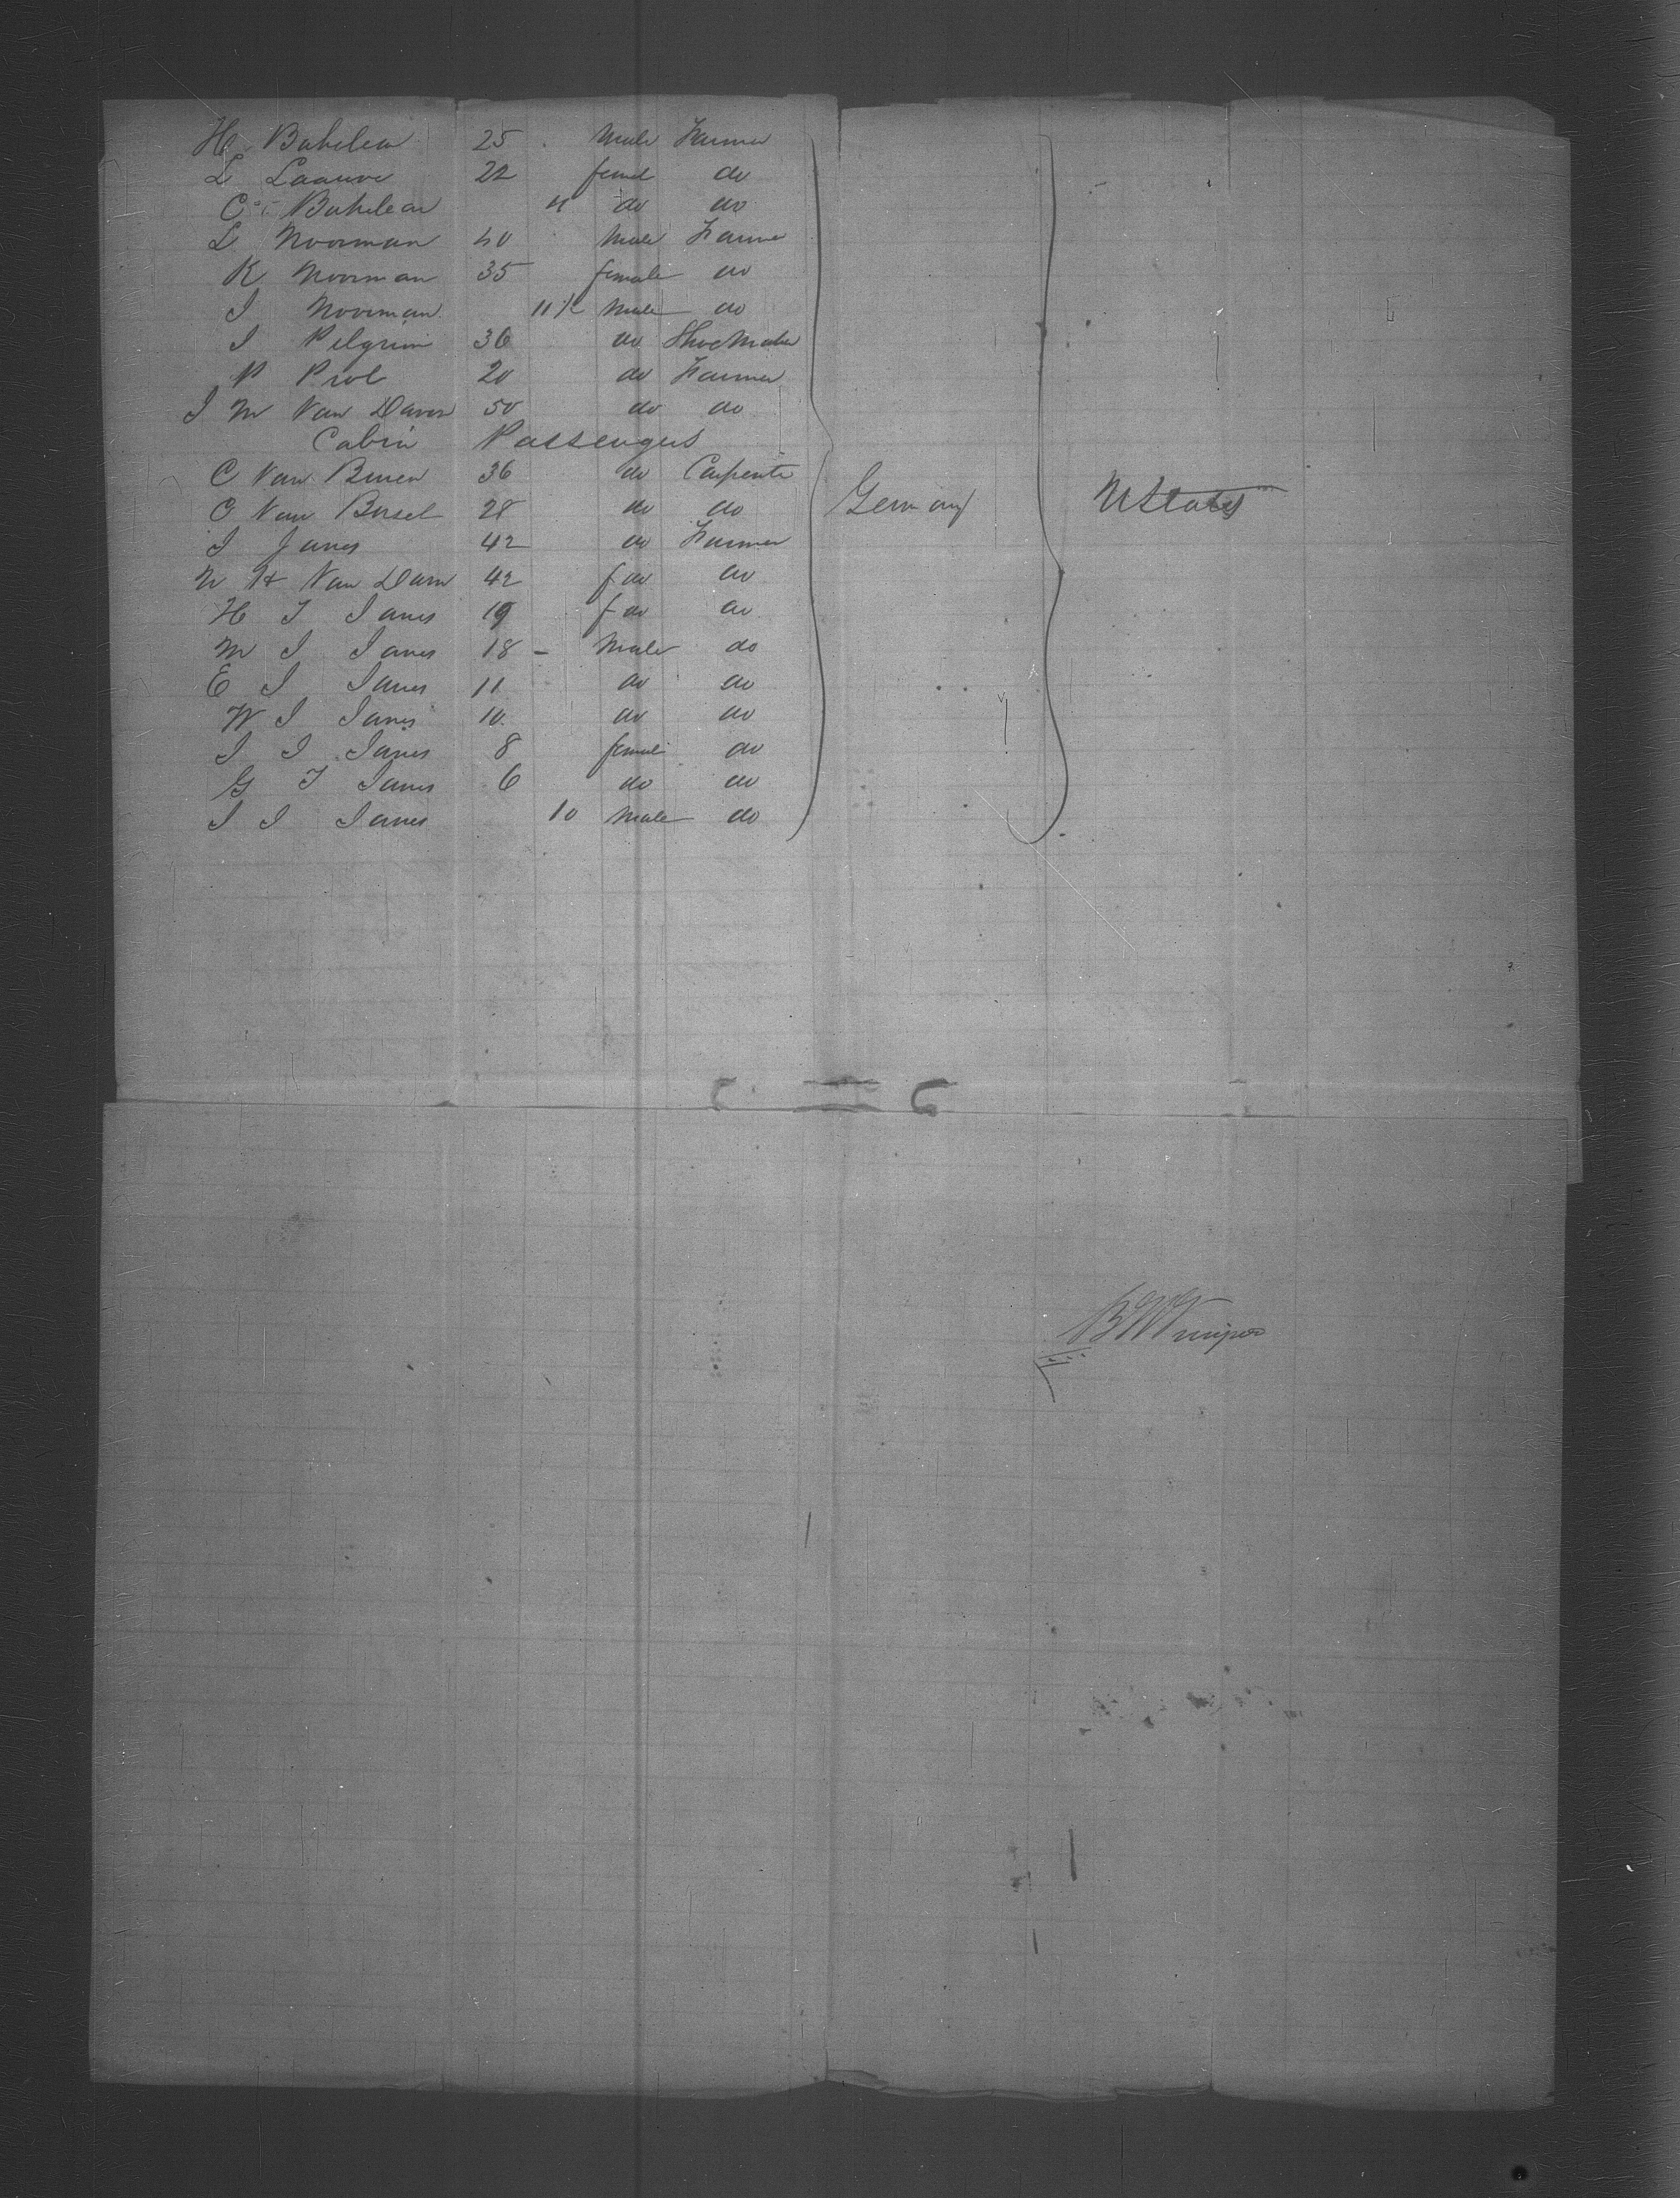 H Bakelea 25 Male Farmer
L Laauwe 22 femal do
C Bakelear 4 do do
L Noorman 40 Male Farme
K Noorman 35 female do
J Noorman 11½ Male do
J Pelgrim 36 do ShoeMaker
P Prol 20 do Farmer
J M Van Daven 50 do do
Cabin Passengers
C Van Buren 36 do Carpente
C Van Bosel 28 do do
J Janes 42 do Farmer
H Van Dam 42 f do do
H J Janes 19 f do do
M J Janes 18 Male do
E J Janes 11 do do
W J Janes 10 do do
J J Janes 8 female do
G J Janes 6 do do
J J Janes 10 Male do
Germany
UStates